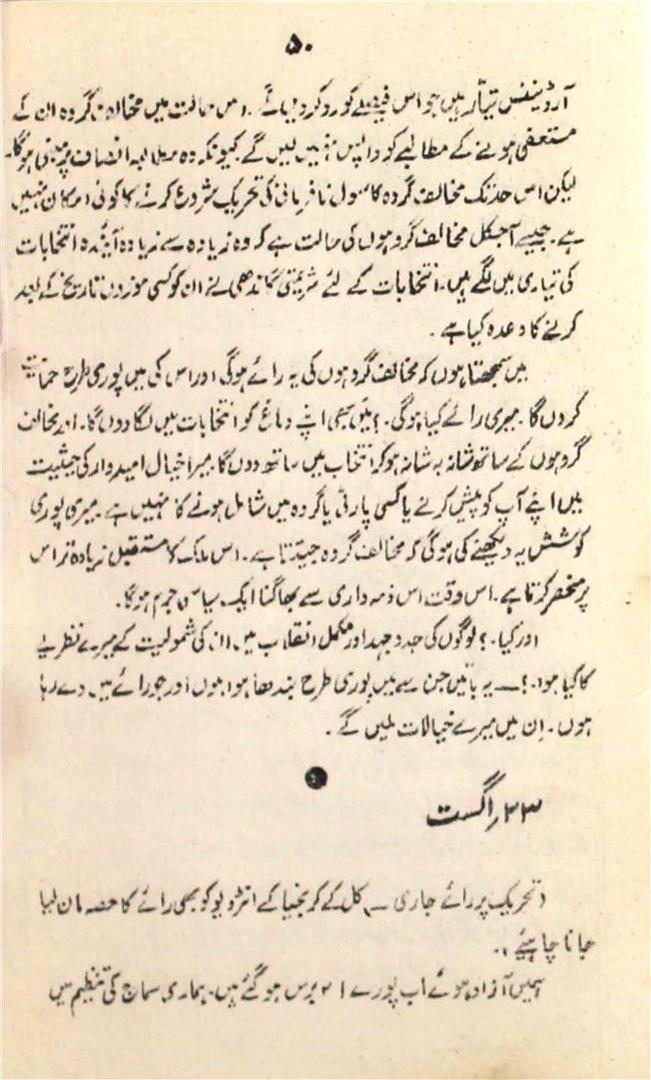 ۵۰
آرڈیننس تیار ہیں جو اس فیصلے کو رد کر دیں گے۔ اس حالت میں مخالف گروہ ان کے
مستعفی ہونے کے مطالبے کو واپس نہیں لیں گے کیونکہ وہ مطالبہ انصاف پر مبنی ہوگا۔
لیکن اس حد تک مخالف گروہ کا سول نافرمانی کی تحریک شروع کرنے کا کوئی امکان نہیں
ہے۔ جیسے آجکل مخالف گروہوں کی حالت ہے کہ وہ زیادہ سے زیادہ آیندہ انتخابات
کی تیاری میں لگے ہیں۔ انتخابات کے لئے شریمتی گاندھی نے ان کو کسی موزوں تاریخ کے بعد
کرنے کا وعدہ کیا ہے۔
میں سمجھتا ہوں کہ مخالف گروہوں کی یہ رائے ہوگی اور اس کی میں پوری طرح حمایت
کروں گا۔ میری رائے کیا ہوگی۔؟ میں بھی اپنے دماغ کو انتخابات میں لگا دوں گا۔ اور مخالف
گروہوں کے ساتھ شانہ بہ شانہ ہو کر انتخاب میں ساتھ دوں گا۔ میرا خیال امیدوار کی حیثیت
میں اپنے آپ کو پیش کرنے یا کسی پارٹی یا گروہ میں شامل ہونے کا نہیں ہے۔ میری پوری
کوشش یہ دیکھنے کی ہوگی کہ مخالف گروہ جیتتا ہے۔ اس ملک کا مستقبل زیادہ تر اس
پر منحصر کرتا ہے۔ اس وقت اس ذمہ داری سے بھاگنا ایک سیاسی جرم ہوگا۔
اور کیا۔؟ لوگوں کی جدوجہد اور مکمل انقلاب میں ان کی شمولیت کے میرے نظریے
کا کیا ہوا۔؟ — یہ باتیں جن سے میں پوری طرح بندھا ہوا ہوں اور جو رائے میں دے رہا
ہوں۔ ان میں میرے خیالات ملیں گے۔
۲۳؍ اگست
(تحریک پر رائے جاری — کل کے کے انٹرویو کو بھی رائے کا حصہ مان لیا
جانا چاہیئے)۔
ہمیں آزاد ہوئے اب پورے ۲۱ برس ہو گئے ہیں۔ ہماری سماج کی تنظیم میں